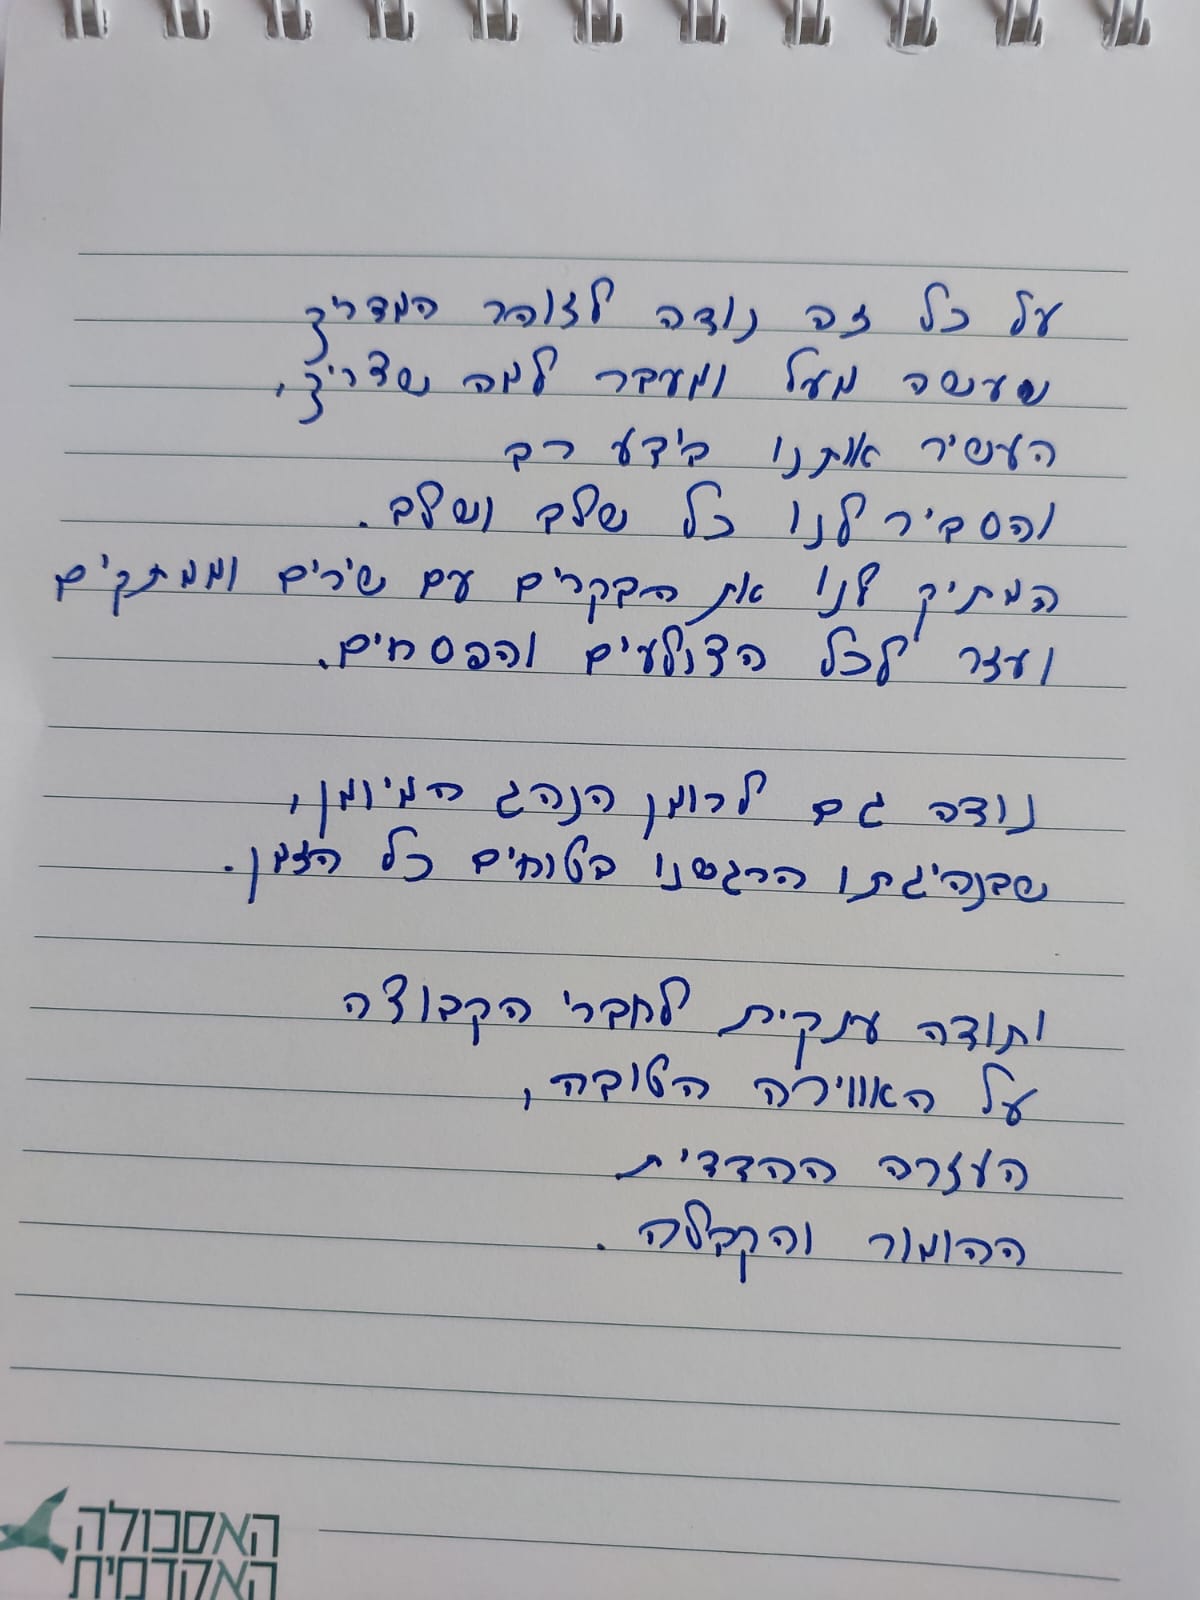 על כל זה נודה לזוהר המדריך
שעשה מעל ומעבר למה שצריך,
העשיר אותנו בידע רב
והסביר לנו כל שלב ושלב.
המתיק לנו את הבקרים עם שירים וממתקים
ועזר לכל הצולעים והפסחים.
נודה גם לרומן הנהג המיומן,
שבנהיגתו הרגשנו בטוחים כל הזמן.
ותודה ענקית לחברי הקבוצה
על האווירה הטובה,
העזרה ההדדית
ההומור והקבלה.
האסכולה
האקדמית